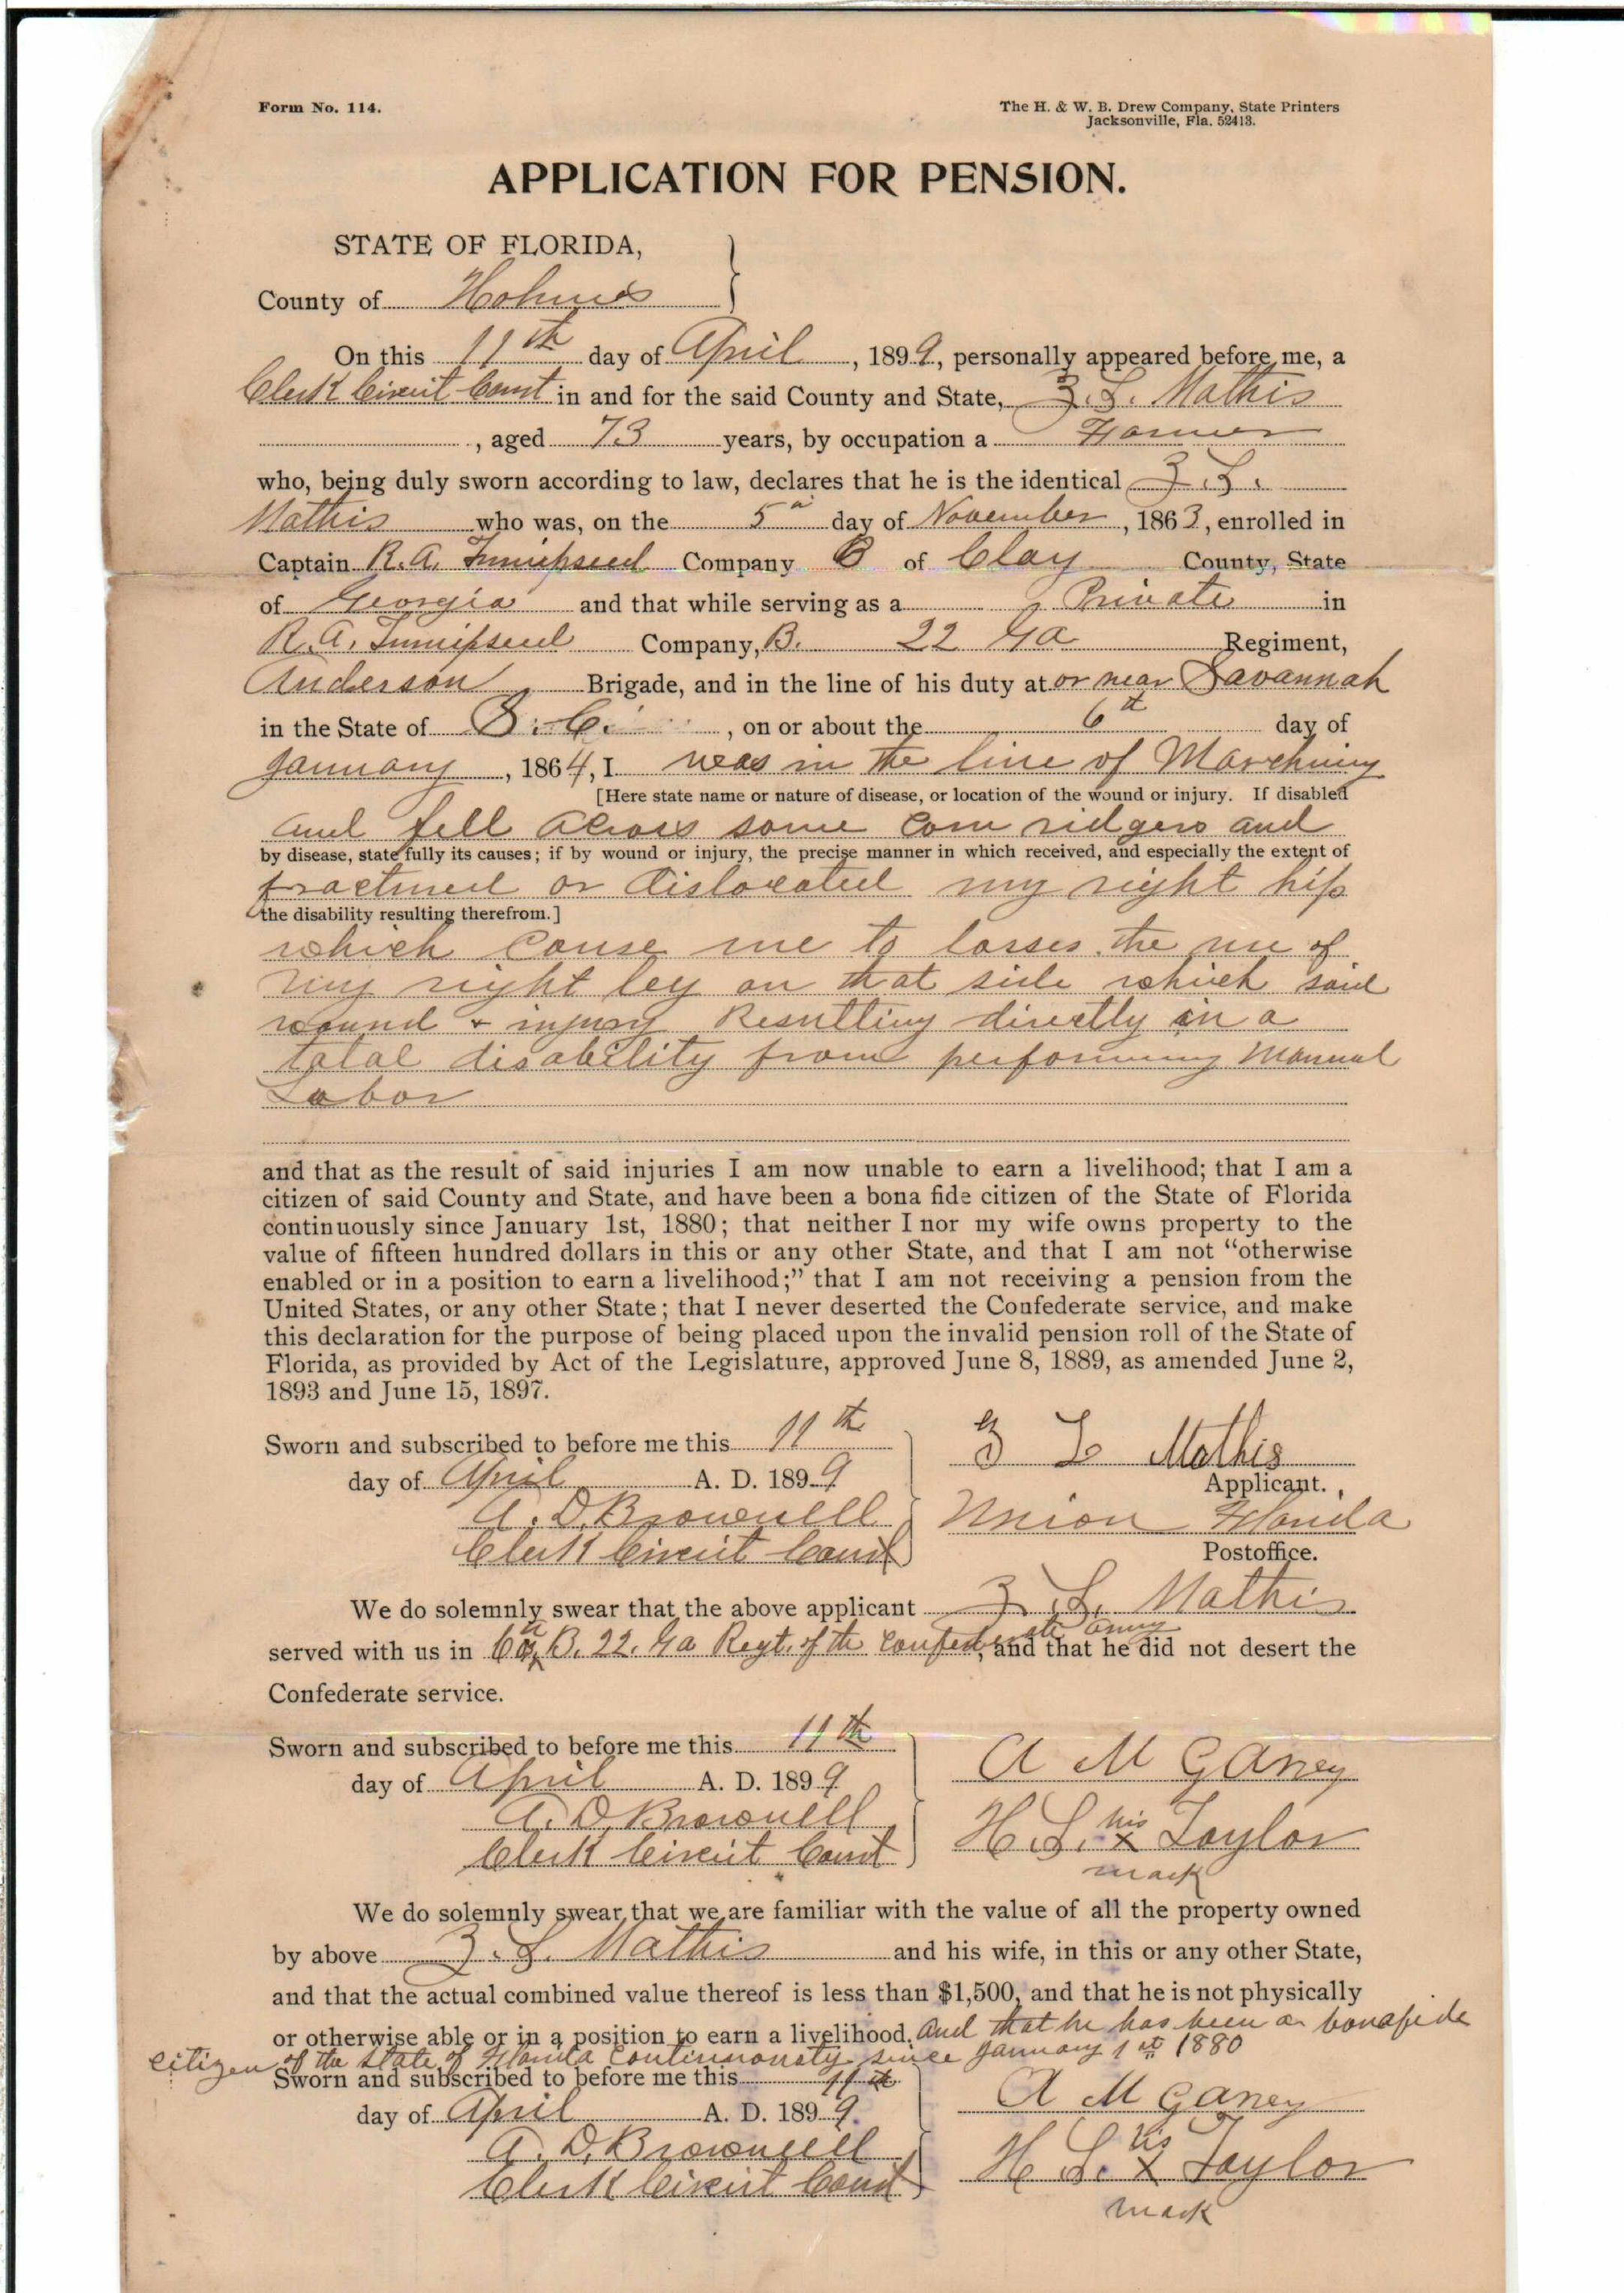 Form No. 114.
The H. & W. B. Drew Company, State Printers
Jacksonville, Fla. 52413.
APPLICATION FOR PENSION.
STATE OF FLORIDA,
County of Holmes
On this 11th day of April, 1899, personally appeared before me, a
Clerk Circuit Court in and for the said County and State, Z. L. Mathis
, aged 73 years, by occupation a Farmer
who, being duly sworn according to law, declares that he is the identical Z. L.
Mathis who was, on the 5th day of November, 1863, enrolled in
Captain R. A. Turnipseed Company B of Clay County, State
of Georgia and that while serving as a Private in
R. A. Turnipseed Company, B. 22 Ga Regiment,
Anderson Brigade, and in the line of his duty at or near Savannah
in the State of S. C. , on or about the 6th day of
January, 1864, I was in the line of Marching
[Here state name or nature of disease, or location of the wound or injury. If disabled
and fell across some corn ridgers and
by disease, state fully its causes; if by wound or injury, the precise manner in which received, and especially the extent of
fractured or dislocated my right hip
the disability resulting therefrom.]
which cause me to losses the use of
my right leg on that side which said
wound & injury Resulting directly in a
total disability from performing Manual
Labor
and that as the result of said injuries I am now unable to earn a livelihood; that I am a
citizen of said County and State, and have been a bona fide citizen of the State of Florida
continuously since January 1st, 1880; that neither I nor my wife owns property to the
value of fifteen hundred dollars in this or any other State, and that I am not "otherwise
enabled or in a position to earn a livelihood;" that I am not receiving a pension from the
United States, or any other State; that I never deserted the Confederate service, and make
this declaration for the purpose of being placed upon the invalid pension roll of the State of
Florida, as provided by Act of the Legislature, approved June 8, 1889, as amended June 2,
1893 and June 15, 1897.
Sworn and subscribed to before me this 11th
day of April A. D. 1899
A. D. Brownell
Clerk Circuit Court
Z L Mathis
Applicant.
Union Florida
Postoffice.
We do solemnly swear that the above applicant Z. L. Mathis
served with us in Co. B. 22. Ga Regt. of the Confederate army, and that he did not desert the
Confederate service.
Sworn and subscribed to before me this 11th
day of April A. D. 1899
A. D. Brownell
Clerk Circuit Court
A M Ganey
H. L. his x Taylor
mark
We do solemnly swear that we are familiar with the value of all the property owned
by above Z. L. Mathis and his wife, in this or any other State,
and that the actual combined value thereof is less than $1,500, and that he is not physically
or otherwise able or in a position to earn a livelihood. And that he has been a bonafide
citizen of the State of Florida Continuously since January 1st 1880
Sworn and subscribed to before me this 11th
day of April A. D. 1899.
A. D. Brownell
Clerk Circuit Court
A M Ganey
H. L. his x Taylor
mark